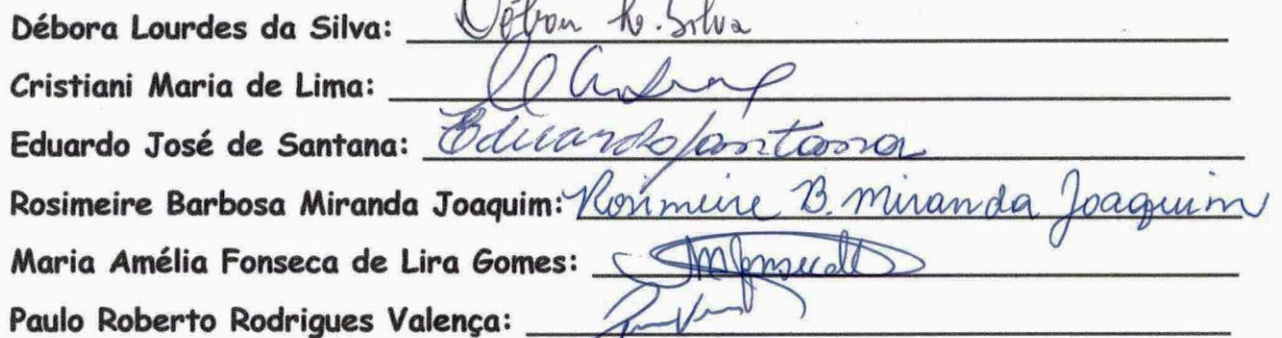 Débora Lourdes da Silva: Débora L. Silva
Cristiani Maria de Lima:
Eduardo José de Santana: Eduardo Santana
Rosimeire Barbosa Miranda Joaquim: Rosimeire B. Miranda Joaquim
Maria Amélia Fonseca de Lira Gomes:
Paulo Roberto Rodrigues Valença: